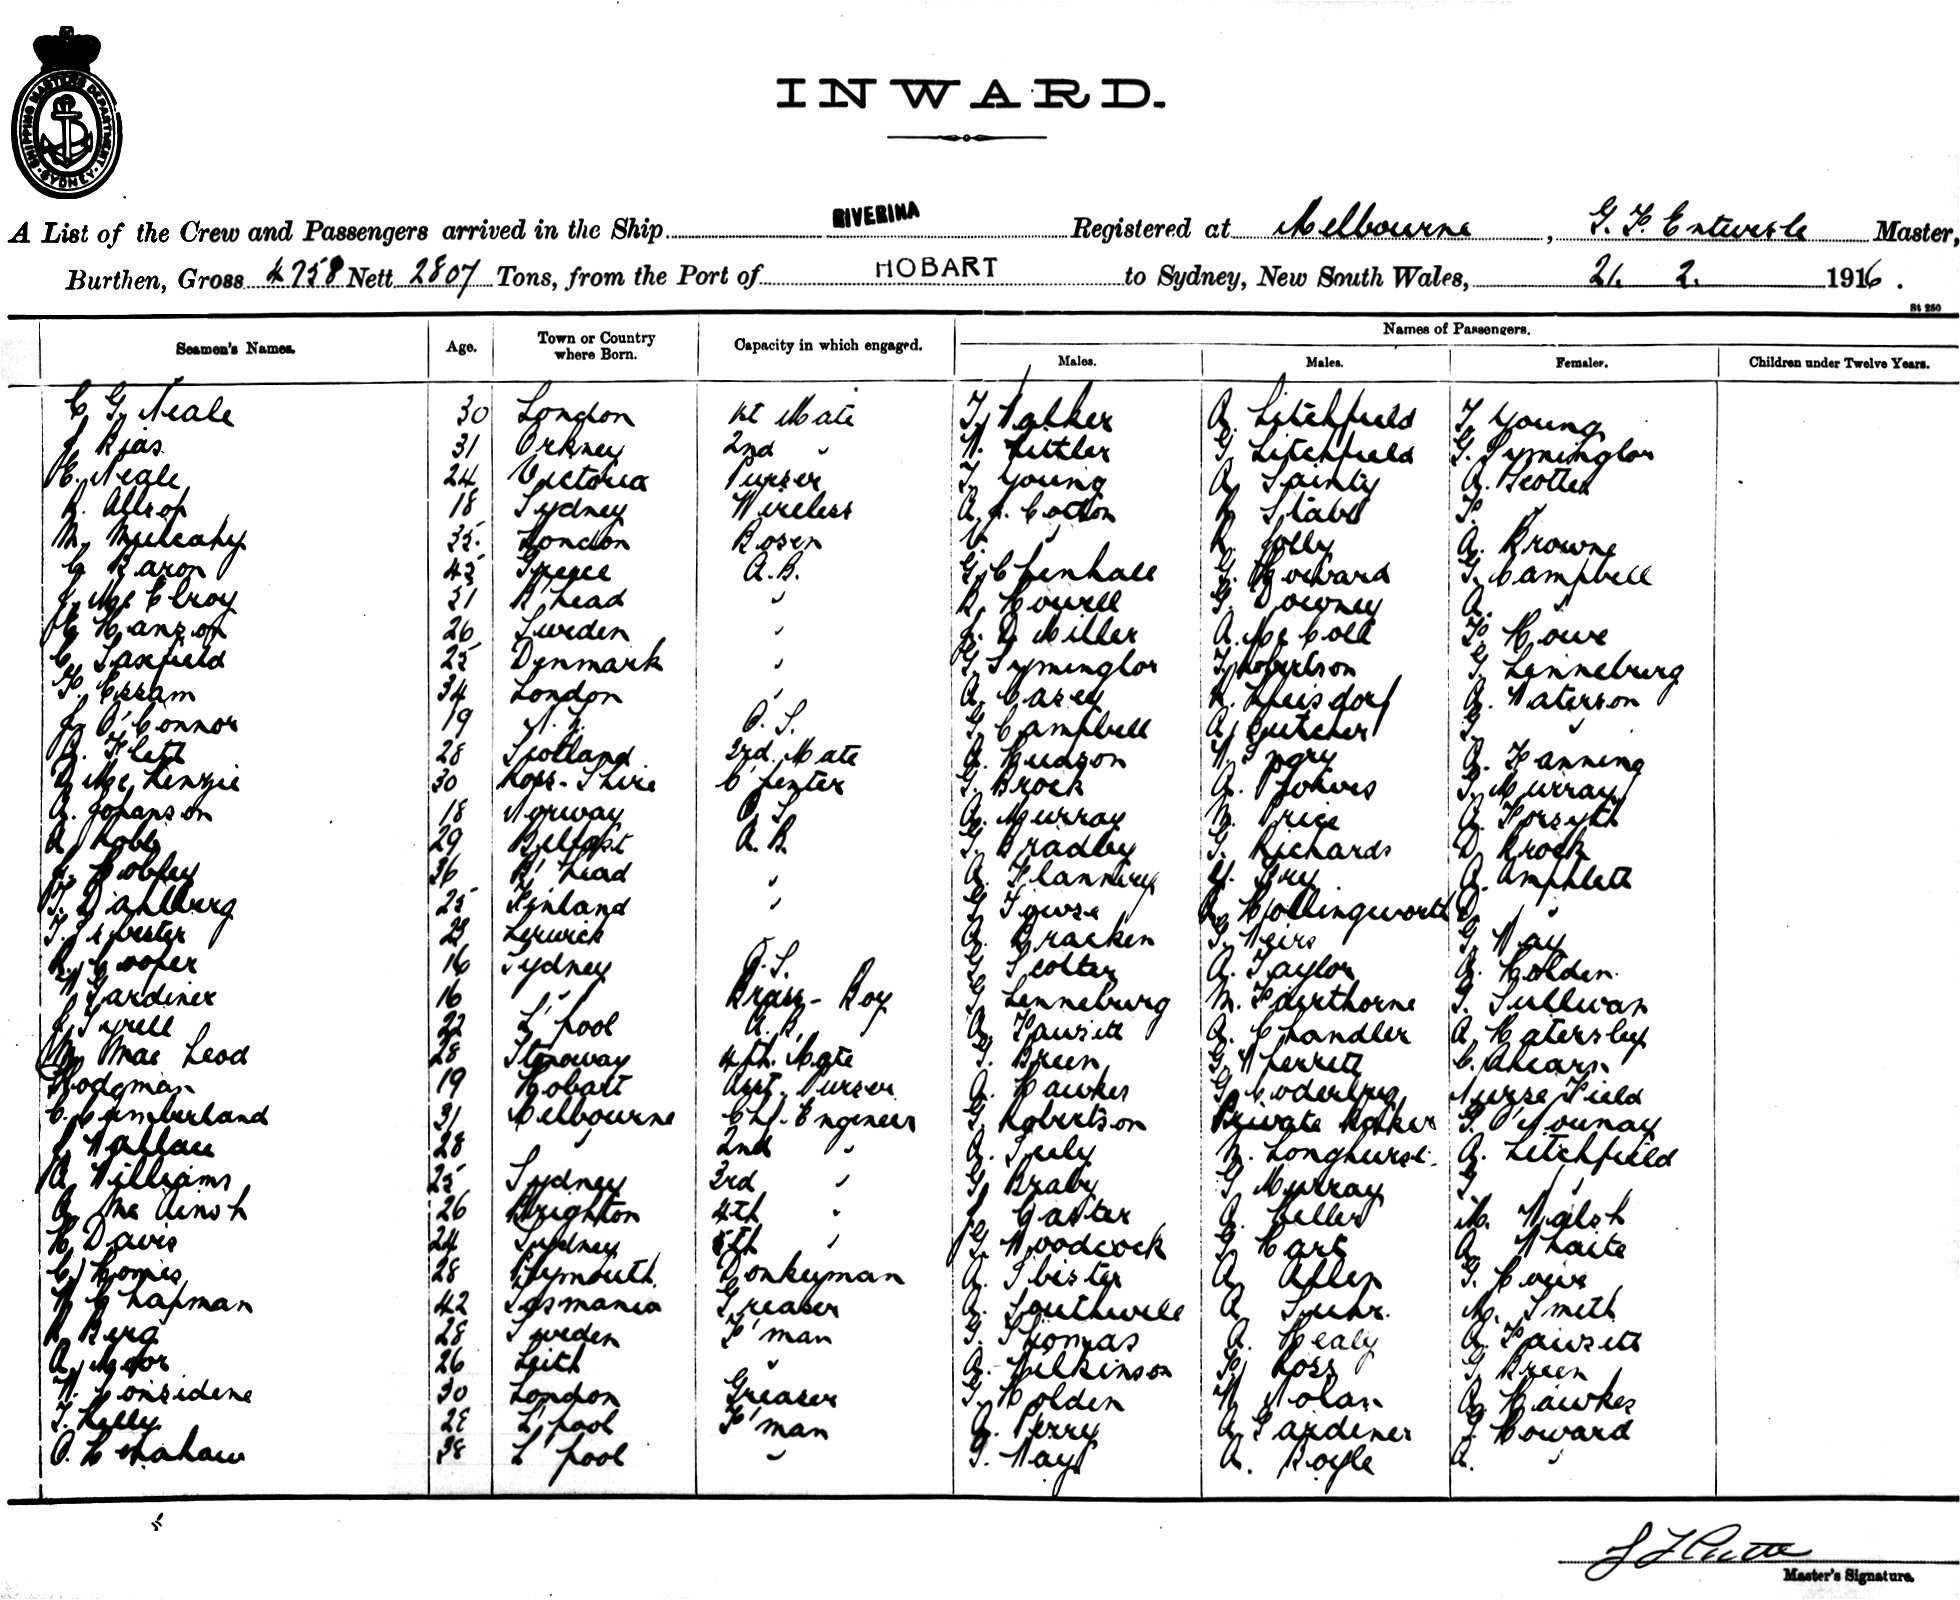 SHIPPING MASTERS DEPARTMENT SYDNEY
INWARD.
A List of the Crew and Passengers arrived in the Ship RIVERINA Registered at Melbourne, Master,
Burthen, Gross 4758 Nett 2807 Tons, from the Port of HOBART to Sydney, New South Wales, 21. 2. 1916.
St 250
Seamen's Names. Age. Town or Country where Born. Capacity in which engaged. Names of Passengers.
Males. Males. Females. Children under Twelve Years.
C. G. Neale 30 London 1st Mate T. Walker A. Litchfield T. Young
J. 31 Orkney 2nd " Littler G. Litchfield G. Symington
Neale 24 Victoria Purser T. Young A. Sainty A. Scotter
R. Allsop 18 Sydney Wireless A. J. Cotton
M. Mulcahy 35 London Bosen Jolly A. Browne
C. Baron 45 Greece A.B. G. Chenhall G. Howard G. Campbell
J. McElroy 31 B'head " R. Howell G. Downey A. "
Hanson 26 Sweden " J. D. Miller A. McColl Howe
C. Saxfield 25 Denmark " G. Symington T. Robertson G. Lenneburg
34 London " A. Casey A. Waterson
J. O'Connor 19 N.Z. O.S. G. Campbell A. Butcher G. "
A. Flett 28 Scotland 3rd. Mate A. Hudson A. Fanning
D. McKenzie 30 Ross-Shire C'penter G. Brock A. G. Murray
A. Johanson 18 Norway O.S. A. Murray M. Price A. Forsyth
Robb 29 Belfast A.B. G. Bradby G. Richards D. Brock
J. 36 B'head " A. Flannery Fry A. Amphlett
Dahlberg 25 Finland " G. Towse Hollingworth "
Lerwick A. Bracken G. G. Way
R. Cooper 16 Sydney O.S. G. Scotter A. Taylor A. Holden
W. Gardiner 16 " Brass-Boy G. Lenneburg M. Fairthorne G. Sullivan
J. Tyrell 22 L'pool A.B. A. Fawsett A. Chandler A. Hatersley
M. MacLeod 28 Stornoway 4th. Mate G. Breen G. Sherrett C. Ahearn
Hodgman 19 Hobart Asst. Purser A. Hawkes Nurse Field
C. Cumberland 31 Melbourne Chf. Engineer G. Robertson Private
J. Wallace 28 " 2nd " A. Longhurst. A. Litchfield
A. Williams 25 Sydney 3rd " G. Braby G. Murray G. "
A. McAinsh 26 Brighton 4th " J. A. M. Walsh
H. Davis 24 Sydney 5th " G. Woodcock G. Hart A. Thaite
C. 28 Plymouth Donkeyman A. A. Allen G.
W. Chapman 42 Tasmania Greaser A. Southwell A. M. Smith
Berg 28 Sweden F'man G. Thomas A. Healy A. Fawsett
A. 26 Leith " A. Wilkinson Ross G. Breen
W. Considene 30 London Greaser G. Holden W. Nolan A. Hawkes
T. Kelly 28 L'pool F'man A. Perry A. Gardener G. Howard
38 L'pool " G. Way A. Boyle A. "
Master's Signature.